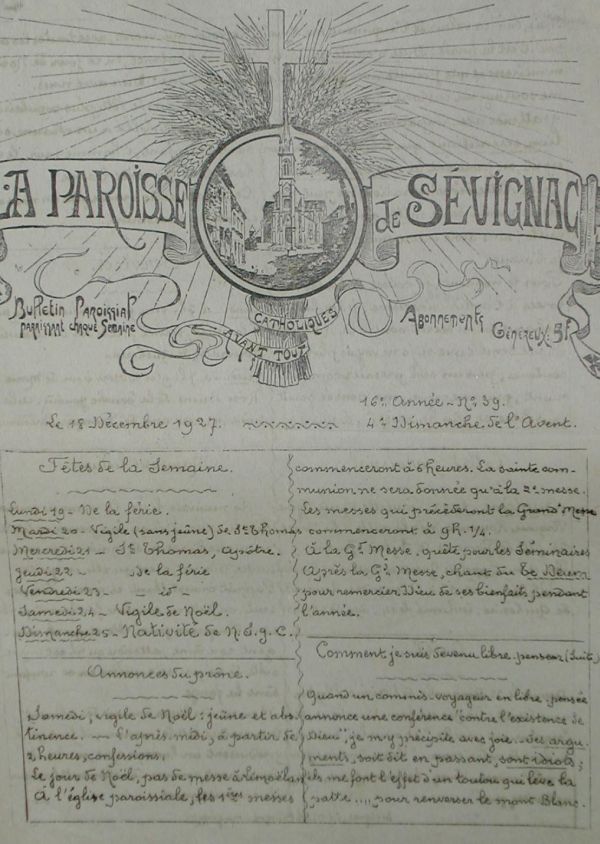 LA PAROISSE
de SÉVIGNAC
Bulletin Paroissial
paraissant chaque Semaine
CATHOLIQUES
AVANT TOUT
Abonnements
Généreux: 5f
16e Année - No 39.
Le 18 Décembre 1927.
4e Dimanche de l'Avent.
Fêtes de la Semaine.
Lundi 19 - De la férie.
Mardi 20 - Vigile (sans jeûne) de St Thomas
Mercredi 21 - St Thomas, apôtre.
Jeudi 22 - de la férie
Vendredi 23 - - id -
Samedi 24 - Vigile de Noël.
Dimanche 25 - Nativité de N.S.J.C.
Annonces du prône.
Samedi, vigile de Noël : jeûne et abs
tinence. - L'après-midi, à partir de
2 heures, confessions.
Le jour de Noël, pas de messe à
À l'église paroissiale, les 1ères messes
commenceront à 6 heures. La sainte com-
munion ne sera donnée qu'à la 2e messe.
Les messes qui précèderont la Grand'Messe
commenceront à 9h. 1/4.
À la Gd Messe, quête pour les Séminaires
Après la Gd Messe, chant du Te Deum
pour remercier Dieu de ses bienfaits pendant
l'année.
Comment je suis devenu libre-penseur (Suite)
Quand un commis-voyageur en libre-pensée
annonce une conférence "contre l'existence de
Dieu" je m'y précipite avec joie. Ses argu-
ments, soit dit en passant, sont idiots;
ils me font l'effet d'un toutou qui lève la
patte.... pour renverser le mont Blanc.